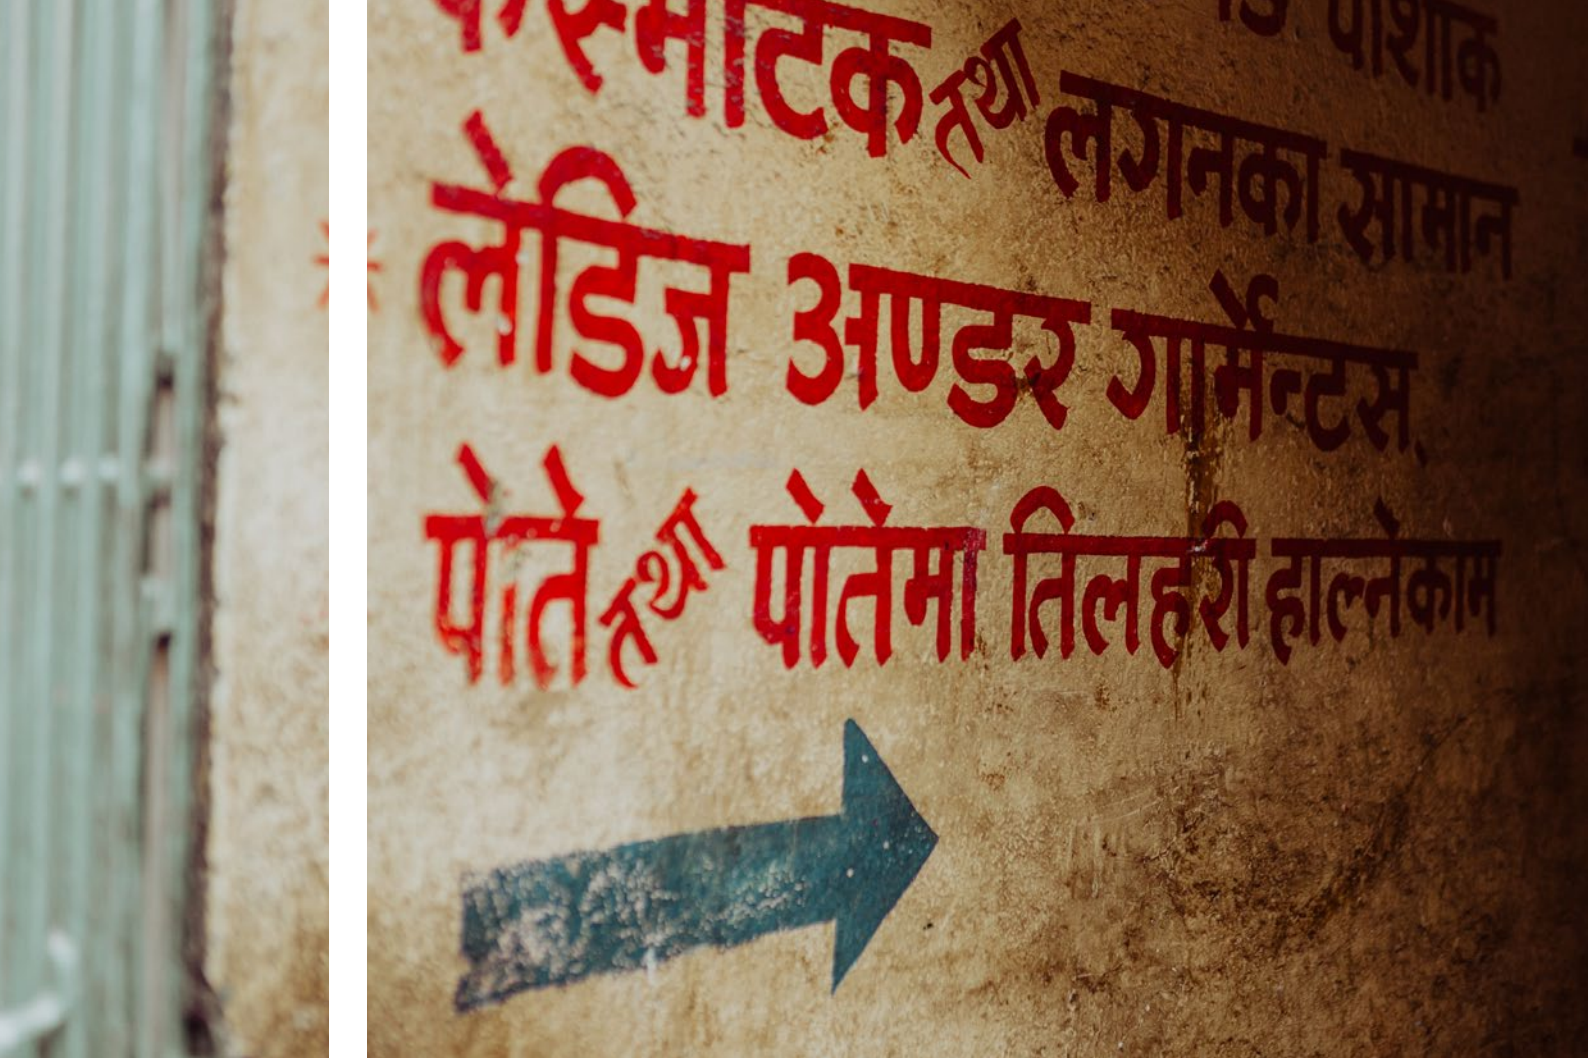 पोशाक
कस्मेटिक तथा लगनका सामान
लेडिज अण्डर गार्मेन्टस्
पोते तथा पोतेमा तिलहरी हाल्नेकाम